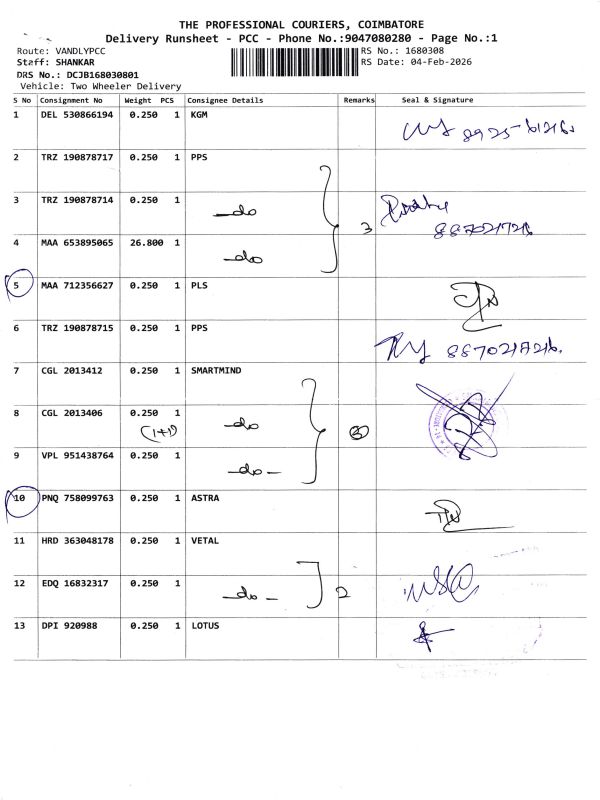 THE PROFESSIONAL COURIERS, COIMBATORE
Delivery Runsheet - PCC - Phone No.:9047080280 - Page No.:1
Route: VANDLYPCC RS No.: 1680308
Staff: SHANKAR RS Date: 04-Feb-2026
DRS No.: DCJB168030801
Vehicle: Two Wheeler Delivery
S No Consignment No Weight PCS Consignee Details Remarks Seal & Signature
1 DEL 530866194 0.250 1 KGM
2 TRZ 190878717 0.250 1 PPS
3 TRZ 190878714 0.250 1 -do 3
4 MAA 653895065 26.800 1 -do
5 MAA 712356627 0.250 1 PLS
6 TRZ 190878715 0.250 1 PPS
7 CGL 2013412 0.250 1 SMARTMIND
8 CGL 2013406 0.250 1 -do
(1+1)
9 VPL 951438764 0.250 1 -do-
10 PNQ 758099763 0.250 1 ASTRA
11 HRD 363048178 0.250 1 VETAL
12 EDQ 16832317 0.250 1 -do- 2
13 DPI 920988 0.250 1 LOTUS